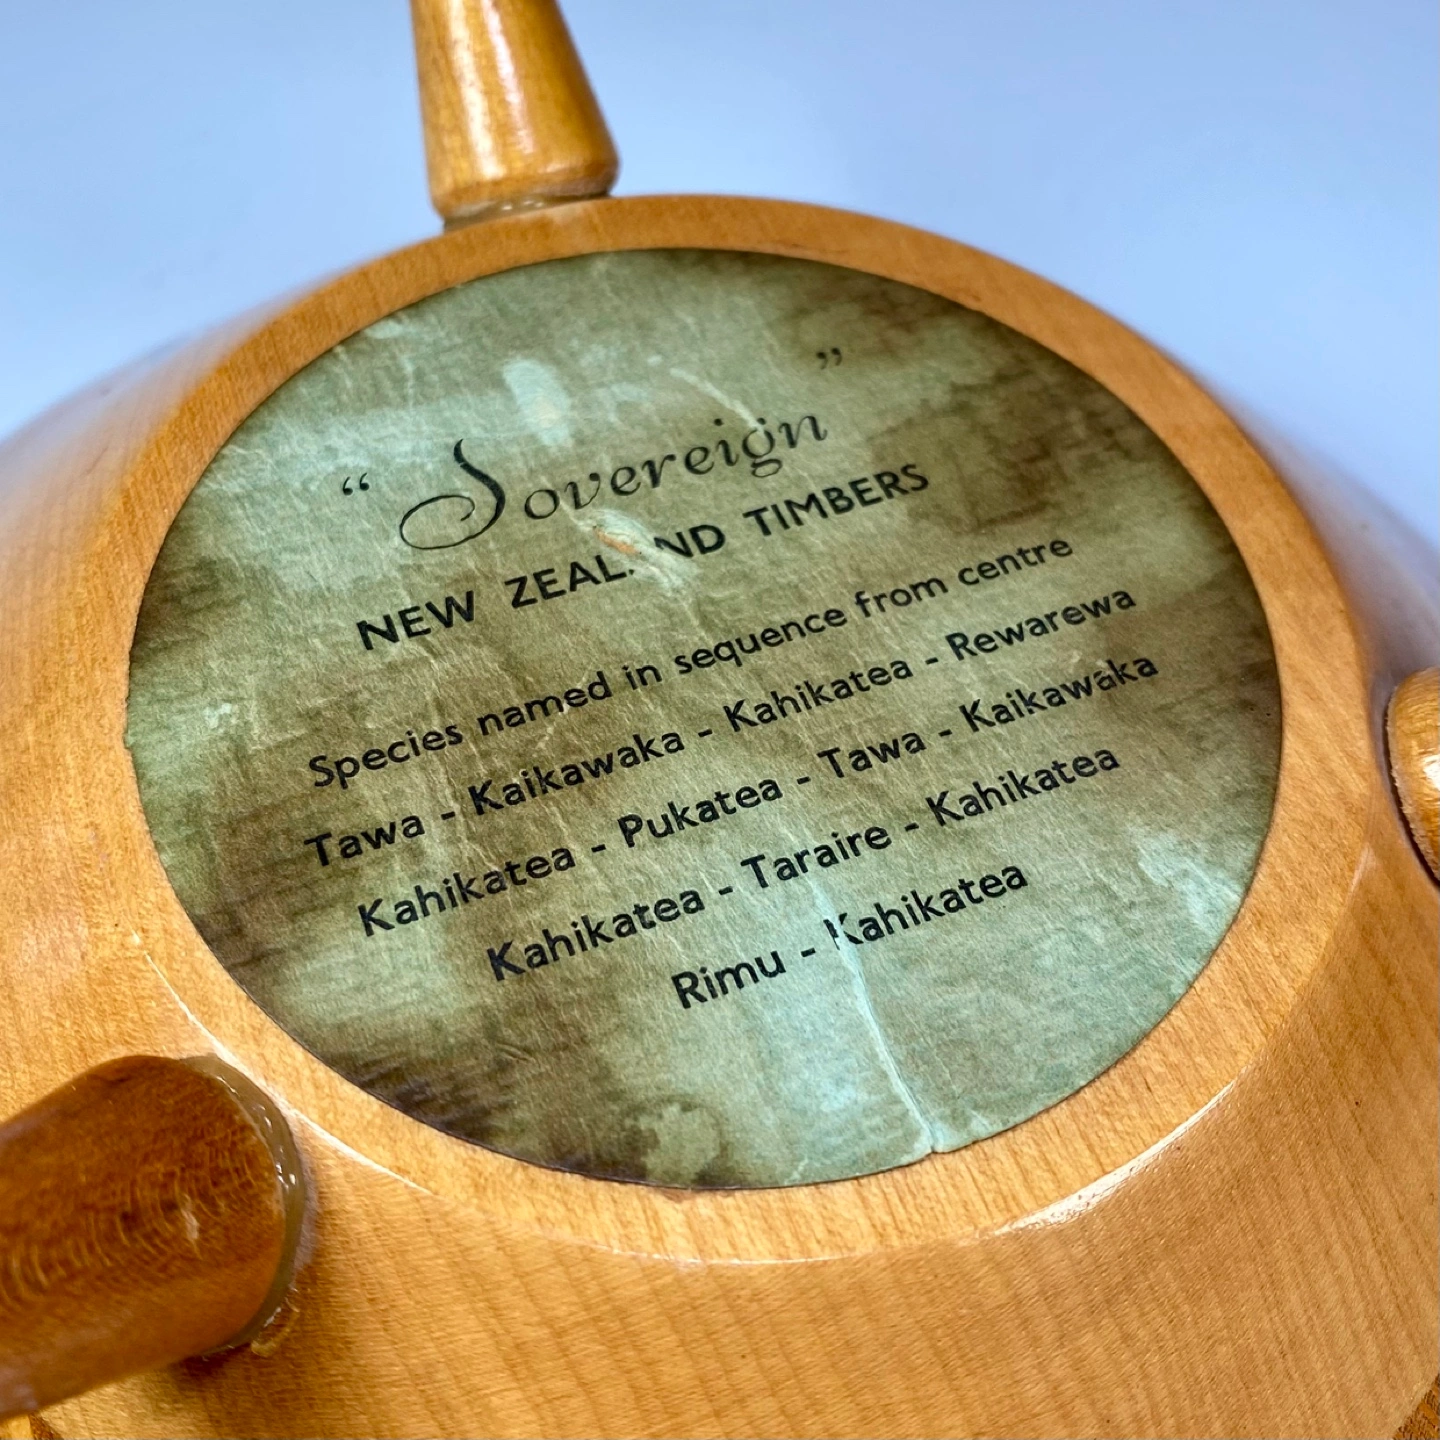 “ Sovereign ”
NEW ZEALAND TIMBERS
Species named in sequence from centre
Tawa - Kaikawaka - Kahikatea - Rewarewa
Kahikatea - Pukatea - Tawa - Kaikawaka
Kahikatea - Taraire - Kahikatea
Rimu - Kahikatea